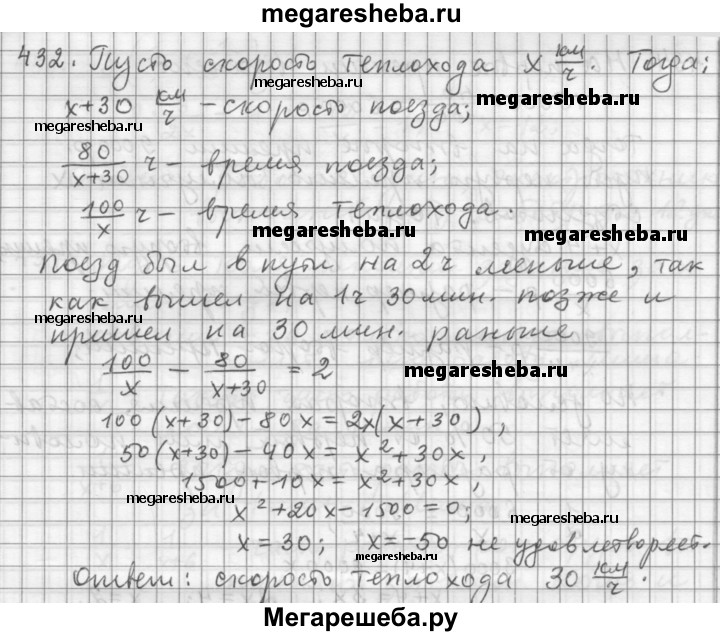 megaresheba.ru
432. Пусть скорость теплохода x км/ч. Тогда:
megaresheba.ru
x+30 км/ч – скорость поезда;
megaresheba.ru
megaresheba.ru
80/(x+30) ч – время поезда;
megaresheba.ru
100/x ч – время теплохода.
megaresheba.ru
megaresheba.ru
поезд был в пути на 2ч меньше, так
как вышел на 1ч 30мин. позже и
megaresheba.ru
пришел на 30мин. раньше
100/x − 80/(x+30) = 2
megaresheba.ru
100(x+30)−80x=2x(x+30),
50(x+30)−40x=x²+30x,
1500+10x=x²+30x,
megaresheba.ru
x²+20x−1500=0;
megaresheba.ru
x=30; x=−50 не удовлетворяет.
megaresheba.ru
Ответ: скорость теплохода 30 км/ч.
Мегарешеба.ру